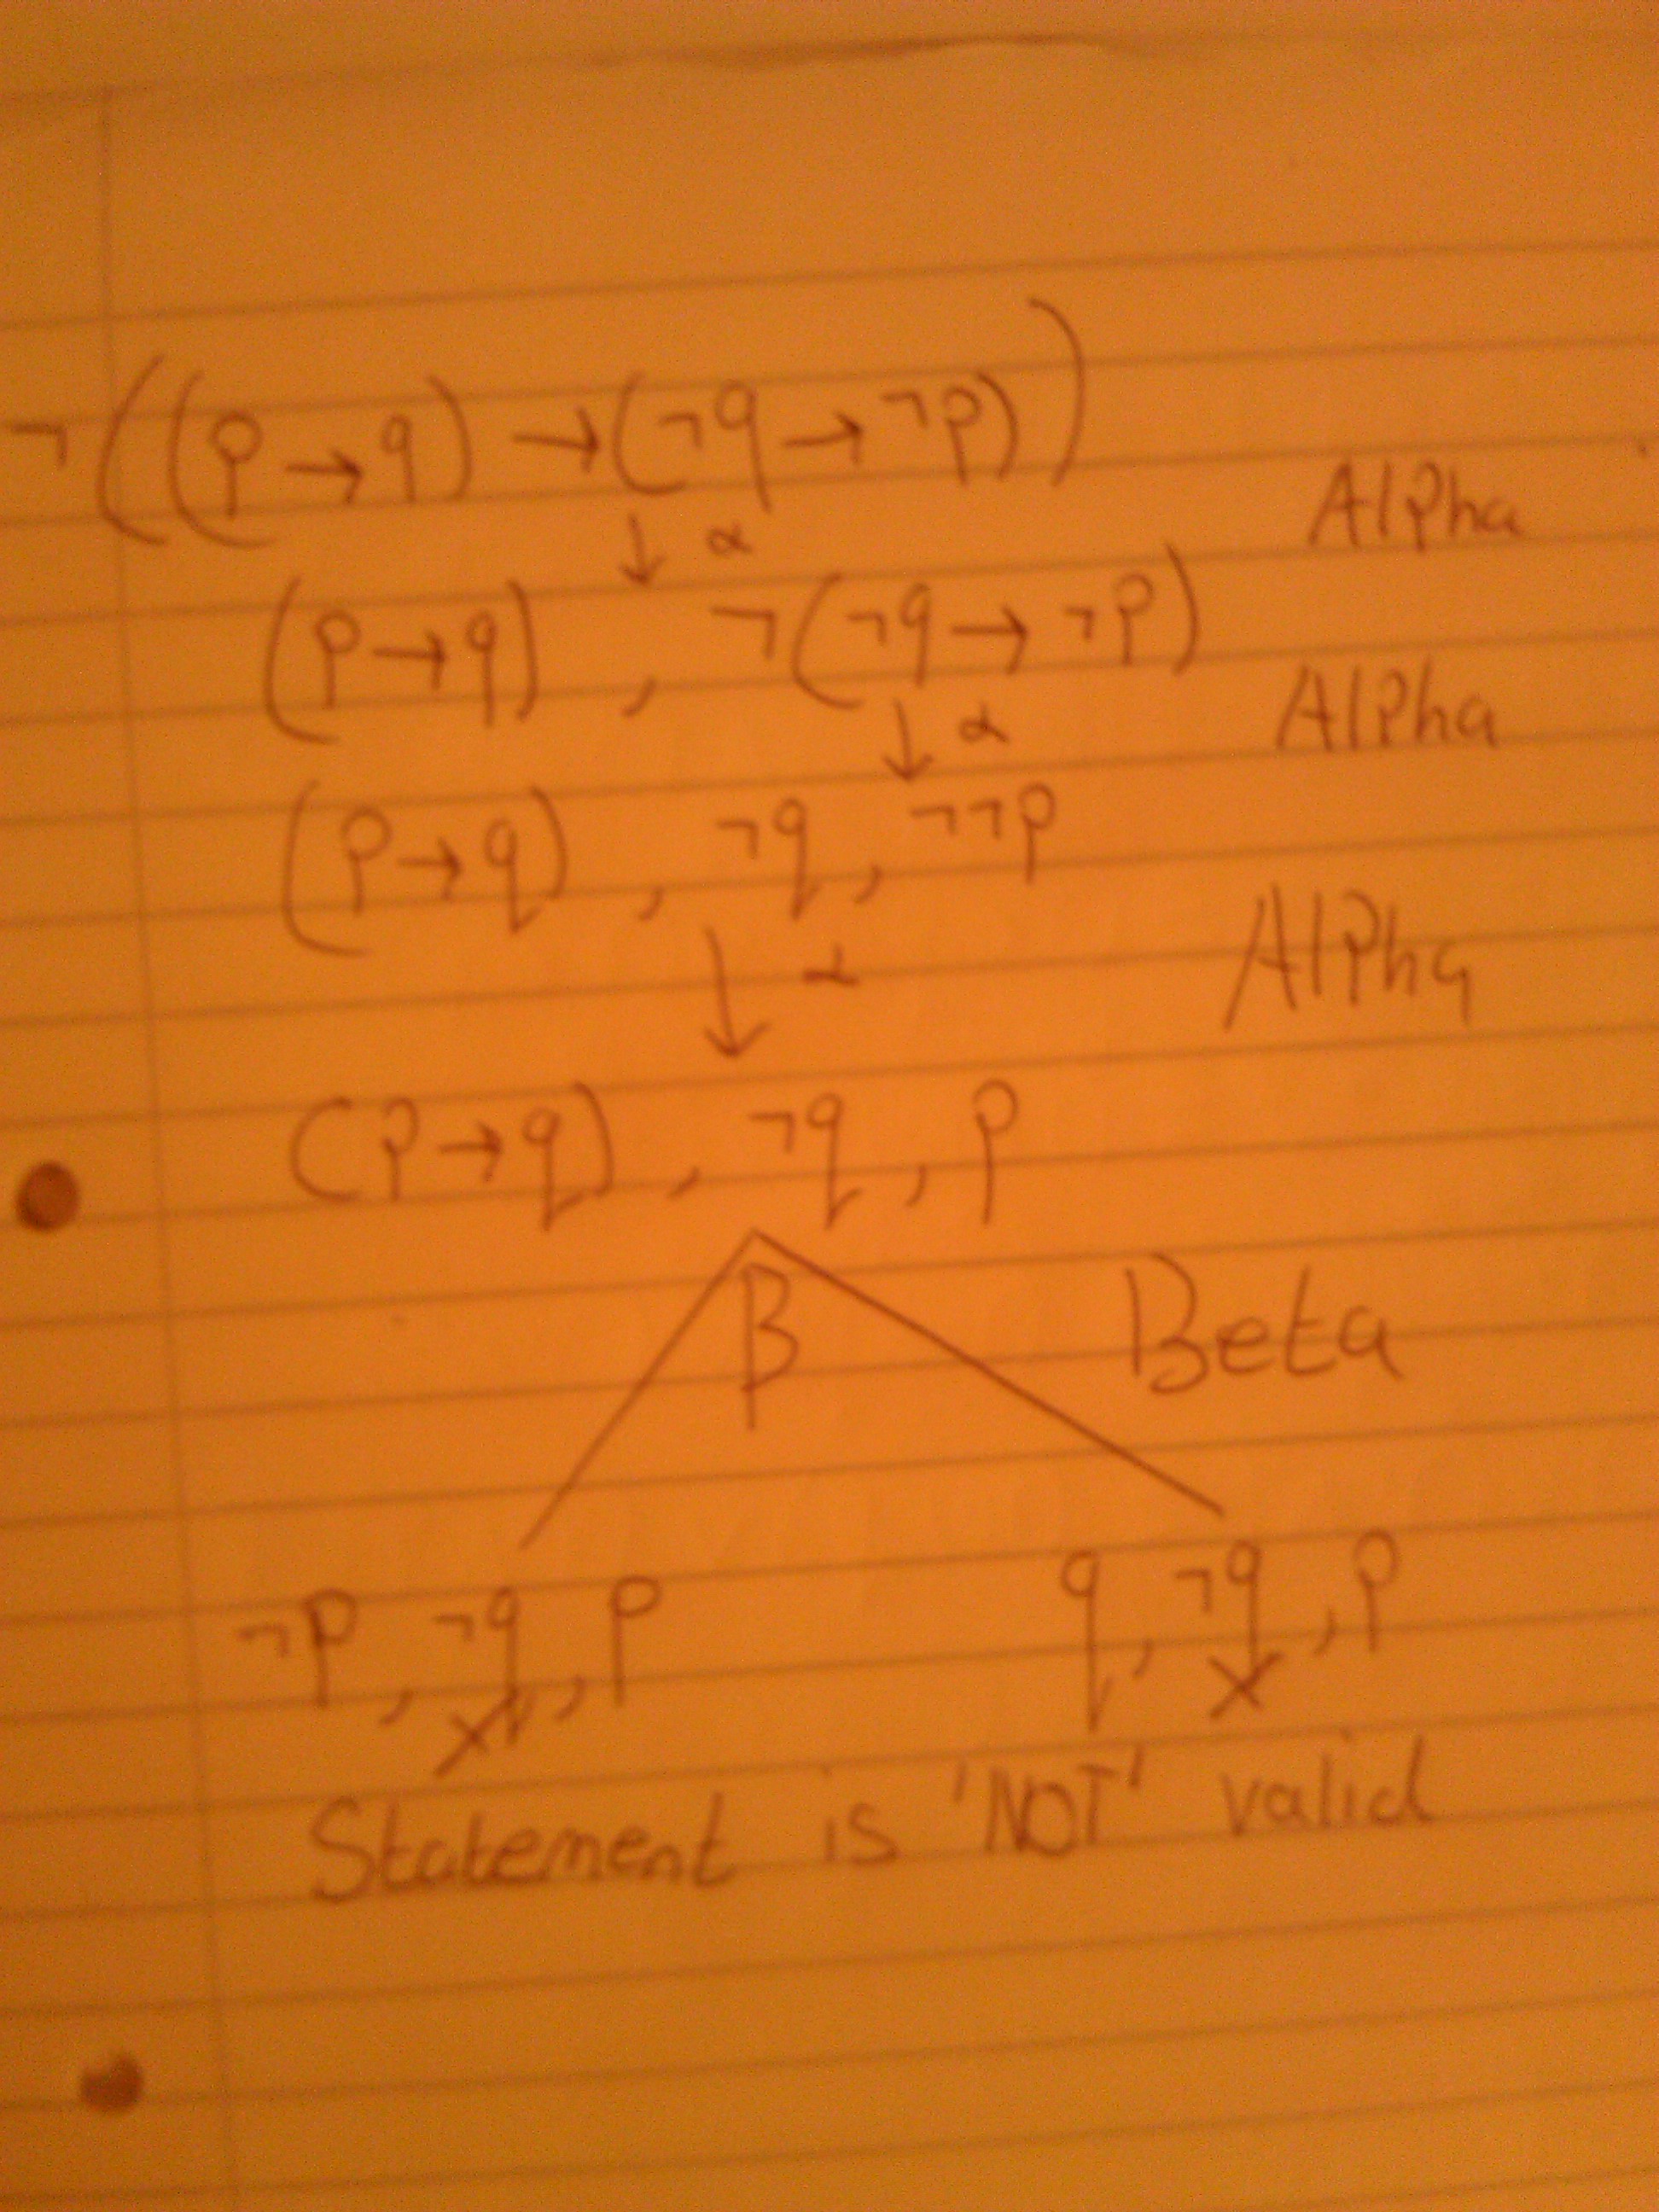 ¬((P→q)→(¬q→¬p))
↓ α Alpha
(P→q) , ¬(¬q→¬P)
↓ α Alpha
(P→q) , ¬q , ¬¬p
↓ α Alpha
(P→q) , ¬q , p
β Beta
¬P , ¬q , P q , ¬q , p
x x
Statement is 'NOT' valid